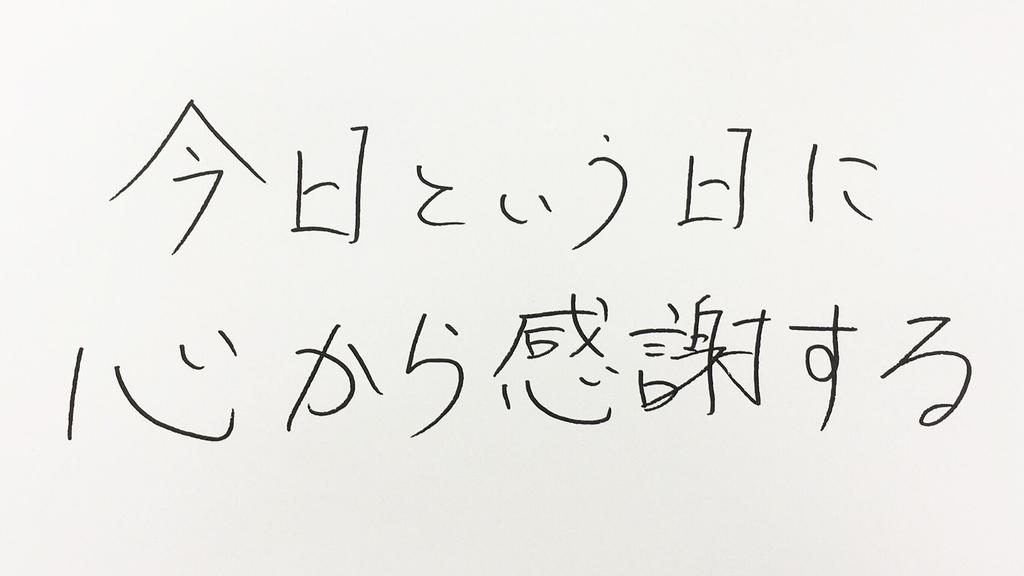 今日という日に
心から感謝する